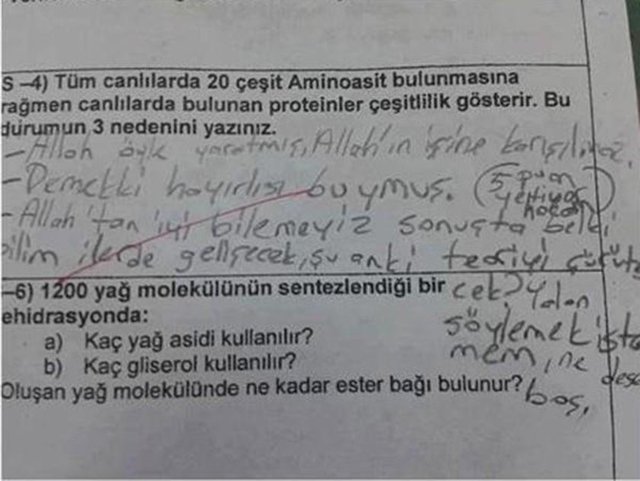 S-4) Tüm canlılarda 20 çeşit Aminoasit bulunmasına
rağmen canlılarda bulunan proteinler çeşitlilik gösterir. Bu
durumun 3 nedenini yazınız.
- Allah öyle yaratmış, Allah'ın işine karışılmaz.
- Demekki hayırlısı buymuş. (5 puan
yetiyor
hocam)
- Allah'tan iyi bilemeyiz sonuçta belki
bilim ilerde gelişecek, şu anki teoriyi çürüte
cek? Yalan
söylemek iste
mem, ne
desem
boş.
-6) 1200 yağ molekülünün sentezlendiği bir
ehidrasyonda:
a) Kaç yağ asidi kullanılır?
b) Kaç gliserol kullanılır?
Oluşan yağ molekülünde ne kadar ester bağı bulunur?